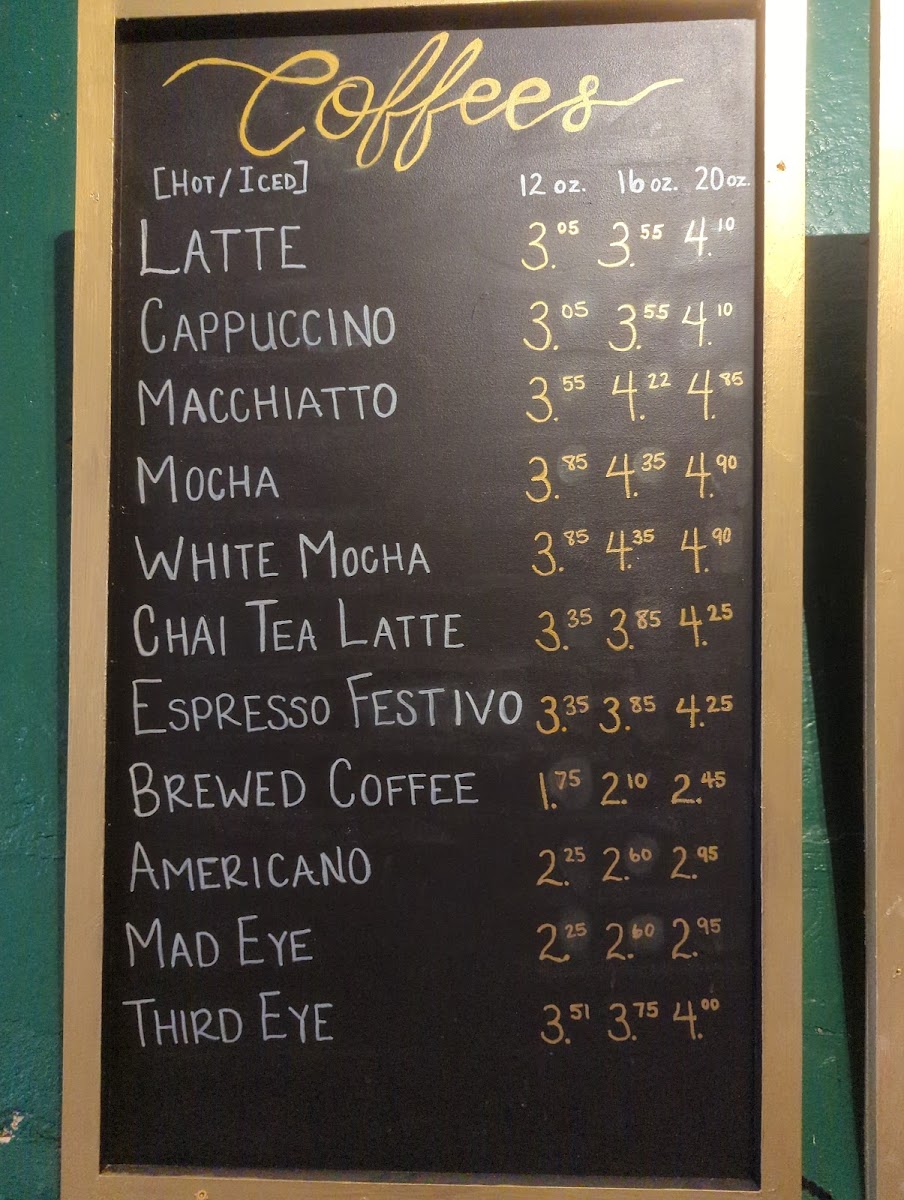 Coffees
[Hot/Iced] 12 oz. 16 oz. 20 oz.
Latte 3.05 3.55 4.10
Cappuccino 3.05 3.55 4.10
Macchiatto 3.55 4.22 4.85
Mocha 3.85 4.35 4.90
White Mocha 3.85 4.35 4.90
Chai Tea Latte 3.35 3.85 4.25
Espresso Festivo 3.35 3.85 4.25
Brewed Coffee 1.75 2.10 2.45
Americano 2.25 2.60 2.95
Mad Eye 2.25 2.60 2.95
Third Eye 3.51 3.75 4.00